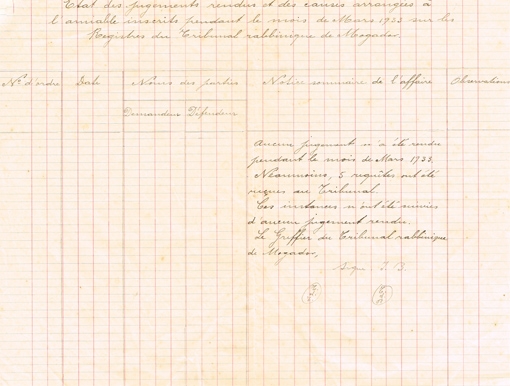 Etat des jugements rendus et des causes arrangées à
l'amiable inscrits pendant le mois de Mars 1933 sur les
Registres du Tribunal rabbinique de Mogador
N° d'ordre Date Noms des parties Notice sommaire de l'affaire Observations
Demandeur Défendeur
Aucun jugement n'a été rendu
pendant le mois de Mars 1933.
Néanmoins, 5 requêtes ont été
reçues au Tribunal
Ces instances n'ont été suivies
d'aucun jugement rendu.
Le Greffier du Tribunal rabbinique
de Mogador,